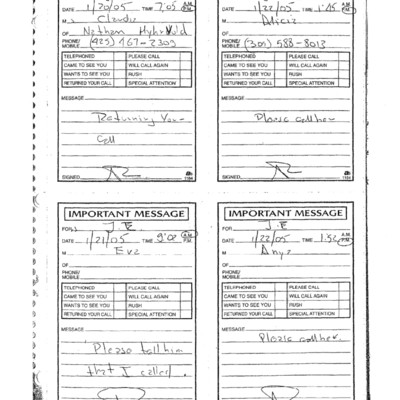 DATE 1/20/05 TIME 7:05 A.M. P.M.
M Claudio
OF Nathan Myhrvold
PHONE/
MOBILE (425) 467-2309
TELEPHONED PLEASE CALL
CAME TO SEE YOU WILL CALL AGAIN
WANTS TO SEE YOU RUSH
RETURNED YOUR CALL SPECIAL ATTENTION
MESSAGE
Returning Your
Call
SIGNED 1184
DATE 1/22/05 TIME 1:45 P.M.
M Alicia
OF
PHONE/
MOBILE (301) 588-8013
TELEPHONED PLEASE CALL
CAME TO SEE YOU WILL CALL AGAIN
WANTS TO SEE YOU RUSH
RETURNED YOUR CALL SPECIAL ATTENTION
MESSAGE
Please call her
SIGNED 1184
IMPORTANT MESSAGE
FOR J.E
DATE 1/21/05 TIME A.M. P.M.
M Eva
OF
PHONE/
MOBILE
TELEPHONED PLEASE CALL
CAME TO SEE YOU WILL CALL AGAIN
WANTS TO SEE YOU RUSH
RETURNED YOUR CALL SPECIAL ATTENTION
MESSAGE
Please tell him
that I called.
IMPORTANT MESSAGE
FOR J.E
DATE 1/22/05 TIME 1:52 A.M. P.M.
M Anya
OF
PHONE/
MOBILE
TELEPHONED PLEASE CALL
CAME TO SEE YOU WILL CALL AGAIN
WANTS TO SEE YOU RUSH
RETURNED YOUR CALL SPECIAL ATTENTION
MESSAGE
Please call her.